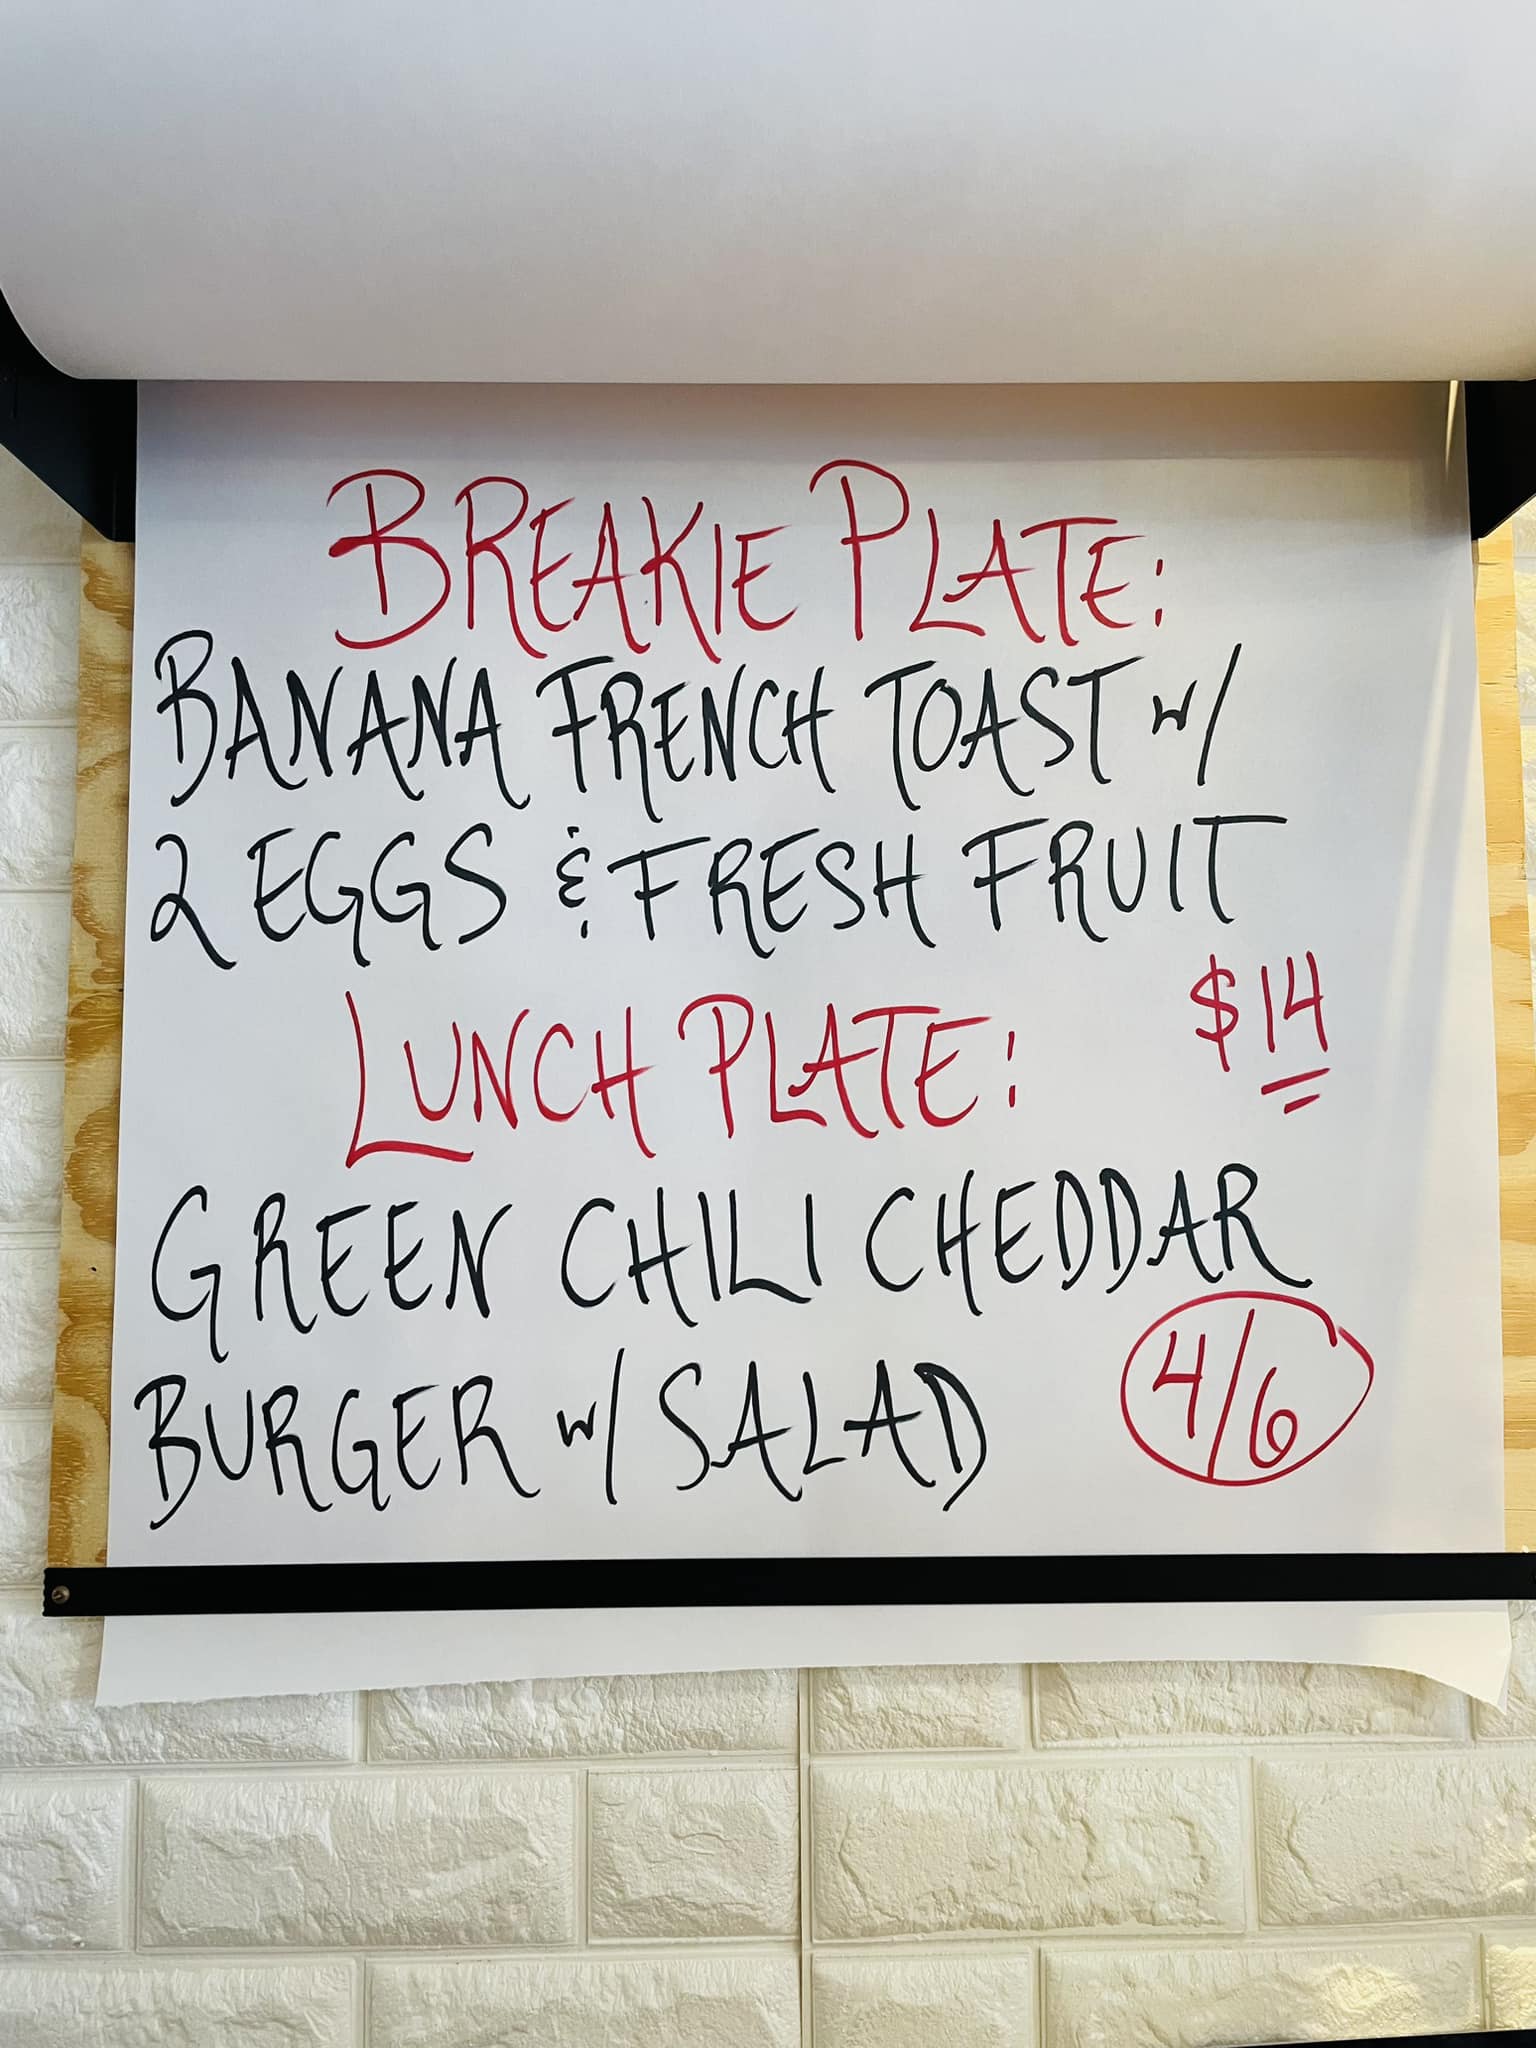 BREAKIE PLATE:
BANANA FRENCH TOAST w/
2 EGGS & FRESH FRUIT
$14
LUNCH PLATE:
GREEN CHILI CHEDDAR
BURGER w/ SALAD
4/6